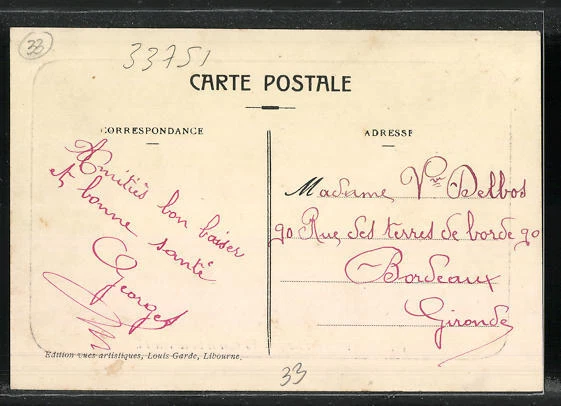 33
33751
CARTE POSTALE
CORRESPONDANCE
ADRESSE
Amitiés bon baiser
et bonne santé
Georges
Madame Vve Delbos
90 Rue des terres de borde 90
Bordeaux
Gironde
Edition vues artistiques, Louis-Garde, Libourne.
33